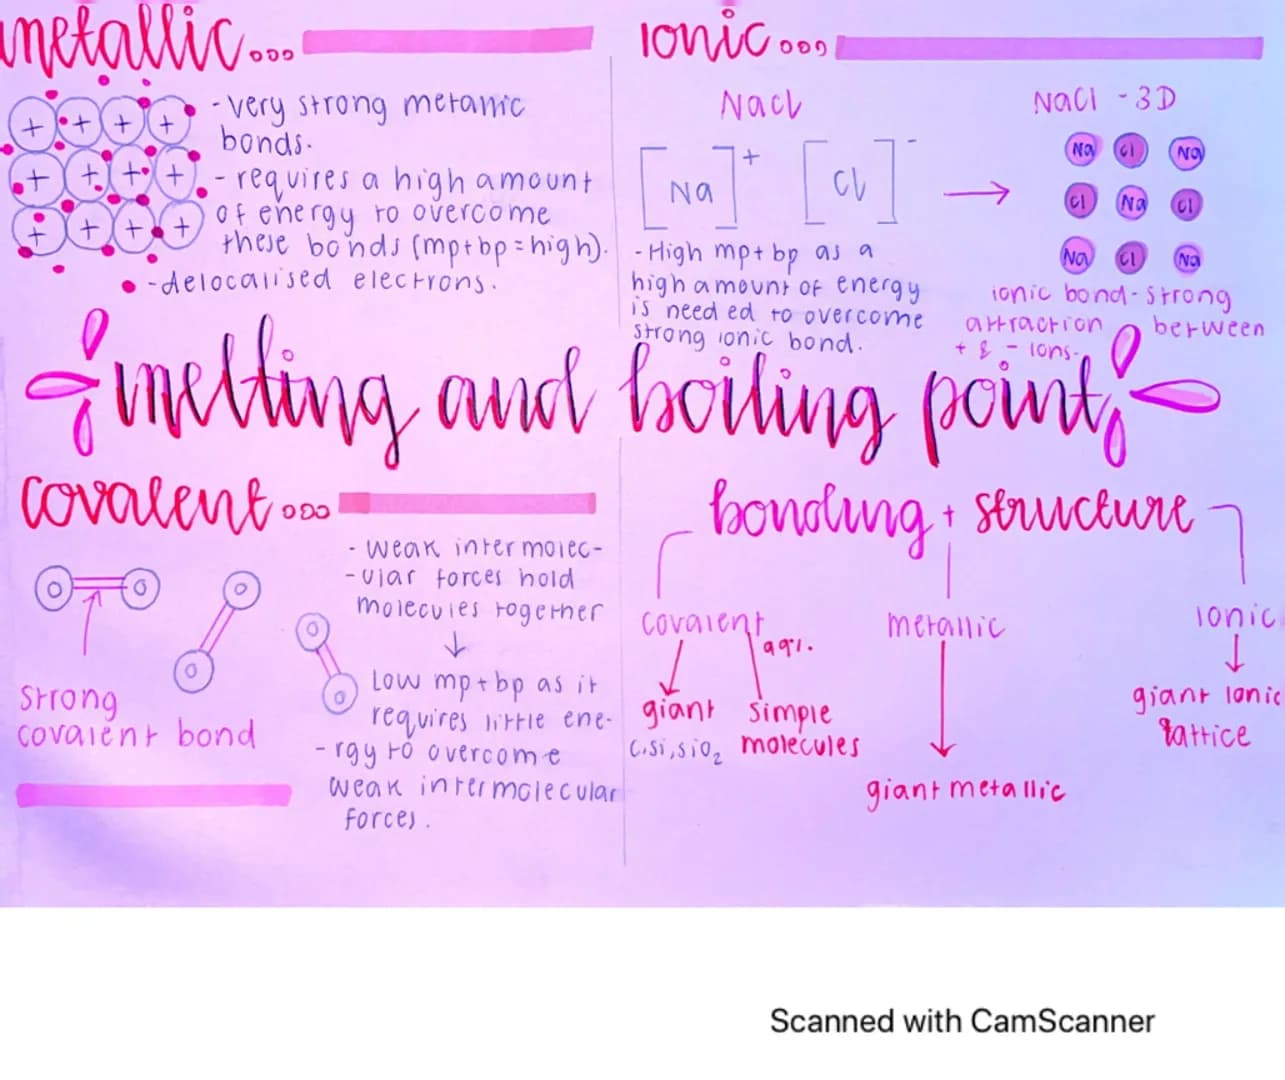 metallic...
- very strong metallic
bonds.
- requires a high amount
of energy to overcome
these bonds (mp+bp = high).
- delocalised electrons.
+ + + +
+ + + +
+ + + +
ionic...
NaCl
[Na]+ [Cl]-
- High mp+bp as a
high amount of energy
is needed to overcome
strong ionic bond.
NaCl - 3D
Na Cl Na
Cl Na Cl
Na Cl Na
ionic bond - strong
attraction between
+ & - ions.
melting and boiling point
covalent...
strong
covalent bond
- weak intermolec-
-ular forces hold
molecules together
Low mp+bp as it
requires little ene-
-rgy to overcome
weak intermolecular
forces.
bonding + structure
covalent
99%.
giant
C, Si, SiO2
simple
molecules
metallic
giant metallic
ionic
giant ionic
lattice
Scanned with CamScanner